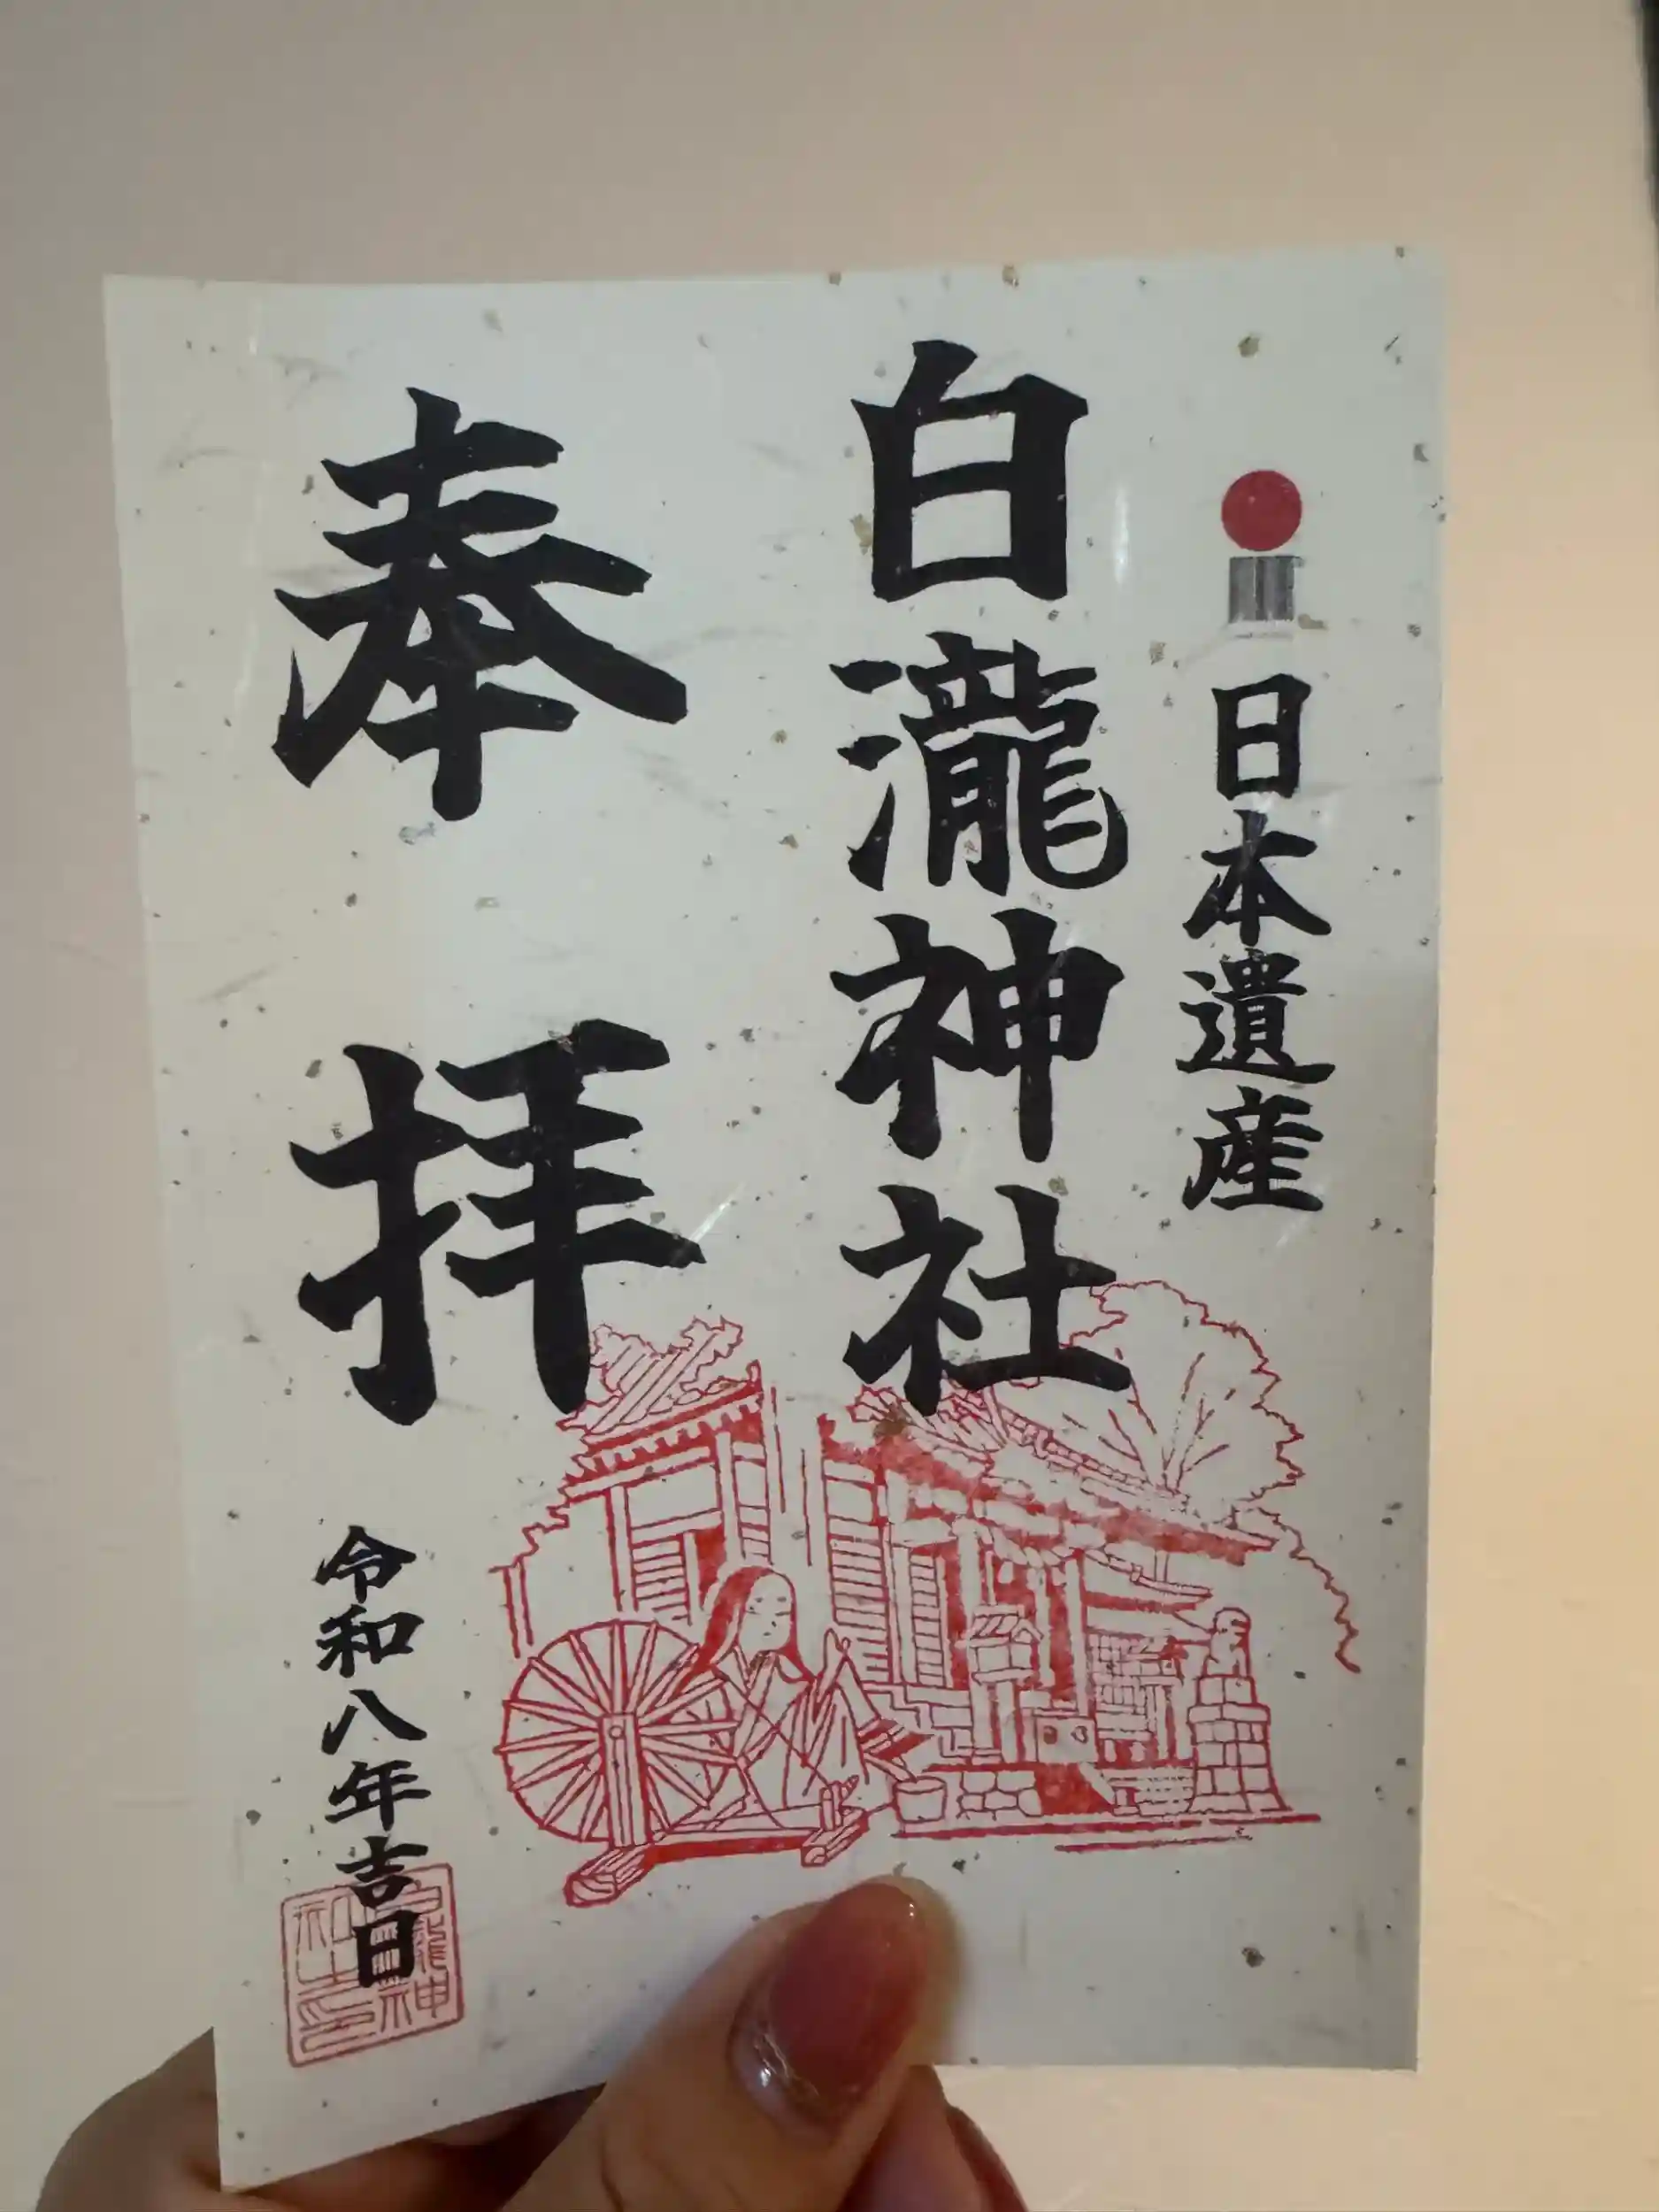 日本遺産
白瀧神社
奉拝
令和八年吉日
白瀧神社印